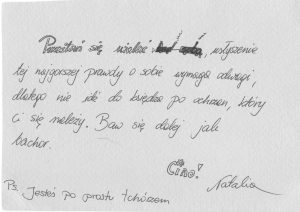 Przestań się wielbić, usłyszenie
tej najgorszej prawdy o sobie wymaga odwagi,
dlatego nie idź do księdza po ochrzan, który
Ci się należy. Baw się dalej jak
bachor.
Ciao!
Natalia
Ps. Jesteś po prostu tchórzem